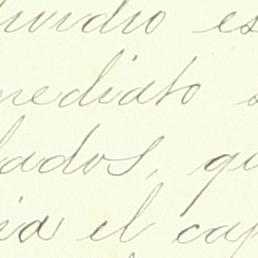 ividio es
mediato s
lados, qu
ia el cap